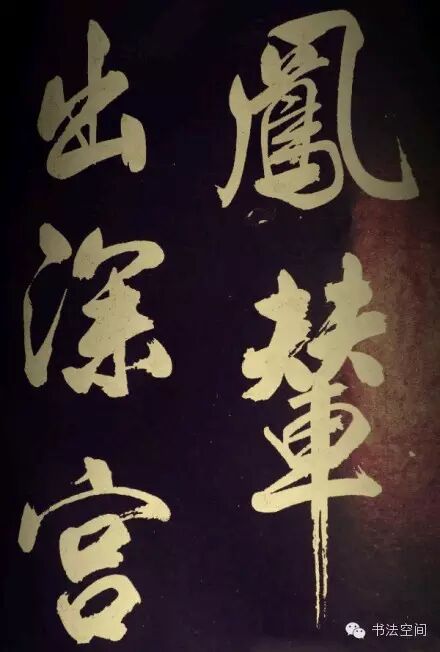 鳳輦
出深宮
书法空间